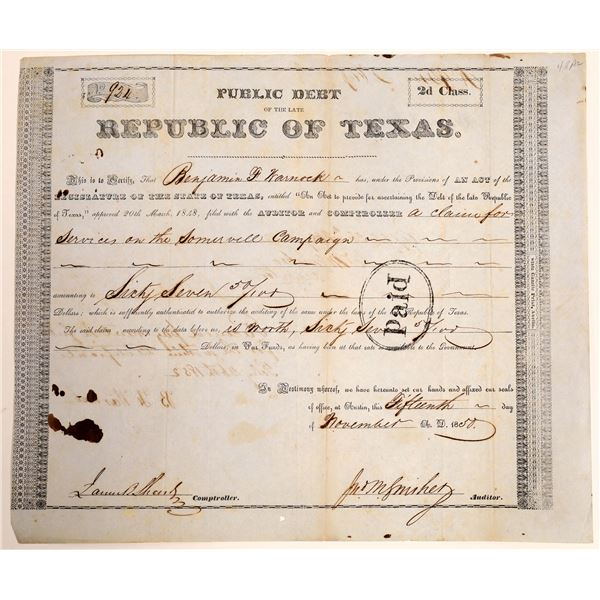 924
PUBLIC DEBT
OF THE LATE
2d Class.
REPUBLIC OF TEXAS.
This is to Certify, That Benjamin F Warnock has, under the Provisions of AN ACT OF THE
LEGISLATURE OF THE STATE OF TEXAS, entitled "An Act to provide for ascertaining the Debt of the late Republic
of Texas," approved 20th March, 1848, filed with the AUDITOR and COMPTROLLER a claim for
Services on the Somervell Campaign
amounting to Sixty Seven 50/100
Dollars; which is sufficiently authenticated to authorize the auditing of the same under the laws of the Republic of Texas.
The said claim, according to the data before us, is worth, Sixty Seven 5/100
Dollars, in Par Funds, as having been at that rate so available to the Government.
In Testimony whereof, we have hereunto set our hands and affixed our seals
of office, at Austin, this Fifteenth day
of November A. D. 1850.
Paid
James B Shaw Comptroller.
Jno M Swisher Auditor.